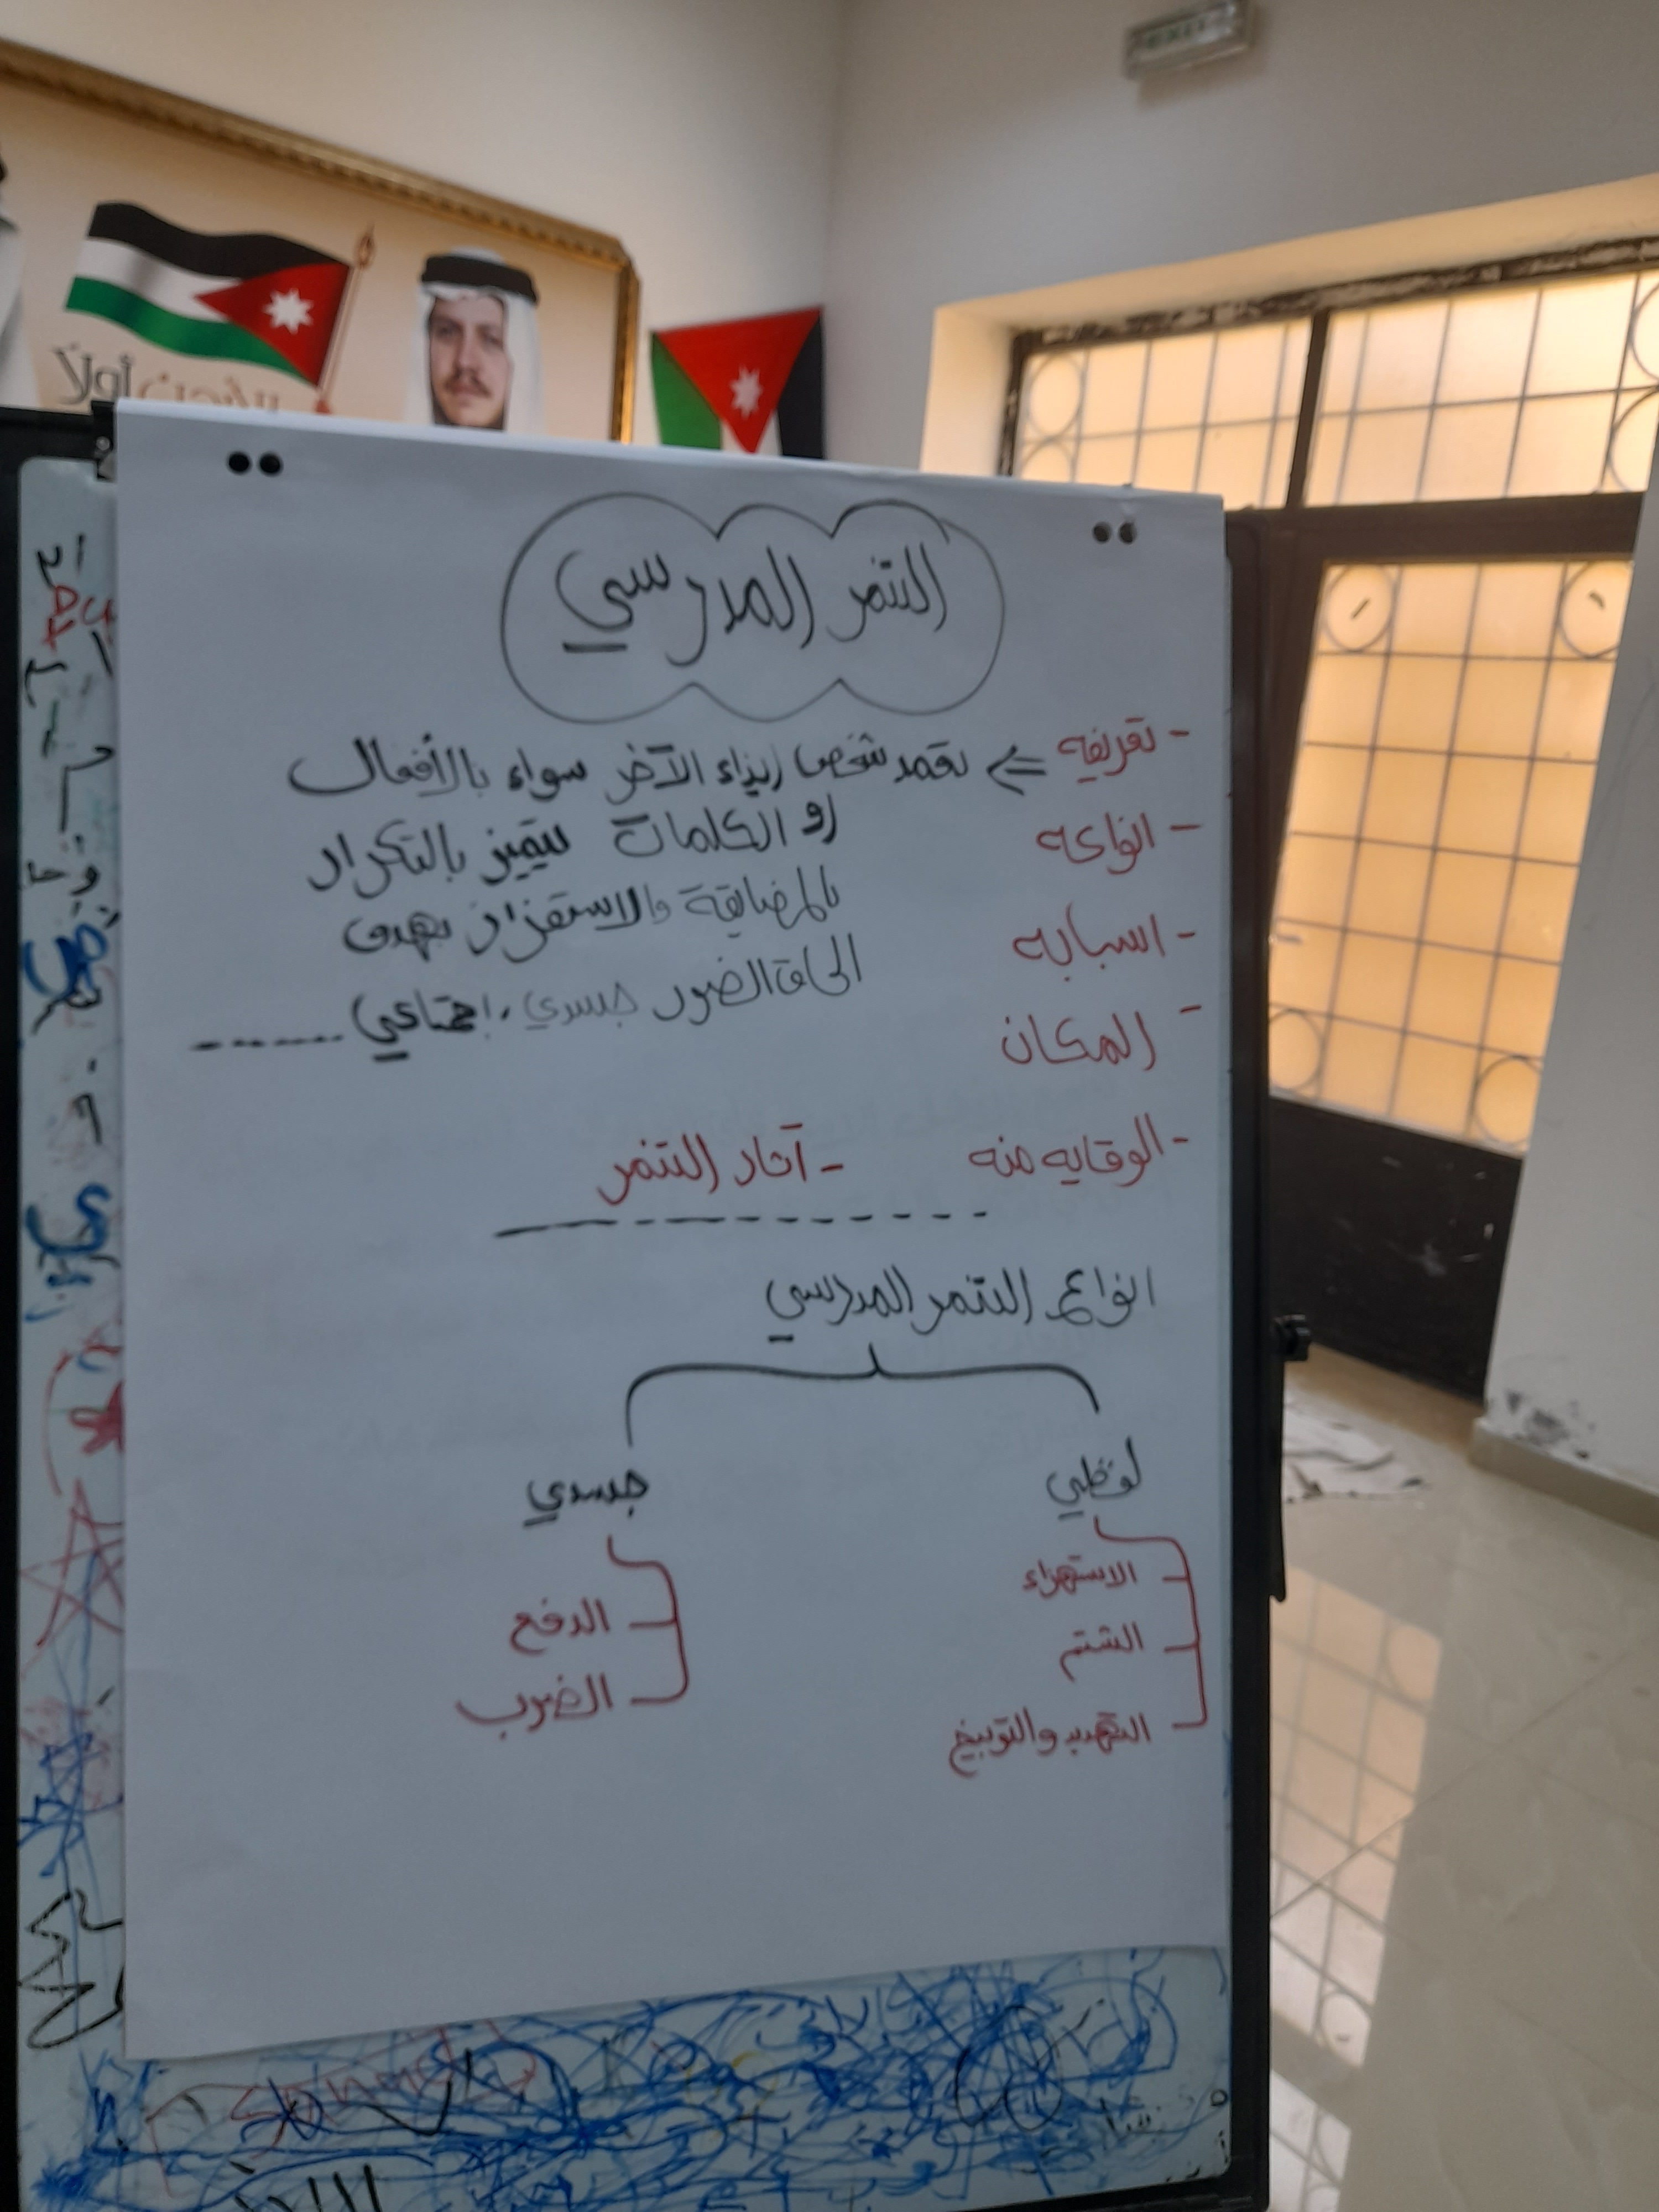 الأردن أولاً
EXIT
التنمر المدرسي
- تعريفه ⇐ تعمد شخص إيذاء الآخر سواء بالأفعال
أو الكلمات يتميز بالتكرار
بالمضايقة والاستفزاز بهدف
الحاق الضرر جسدي، اجتماعي ------
- انواعه
- اسبابه
- المكان
- الوقايه منه - آثار التنمر
انواع التنمر المدرسي
لفظي جسدي
الاستهزاء
الشتم
التهديد والتوبيخ
الدفع
الضرب